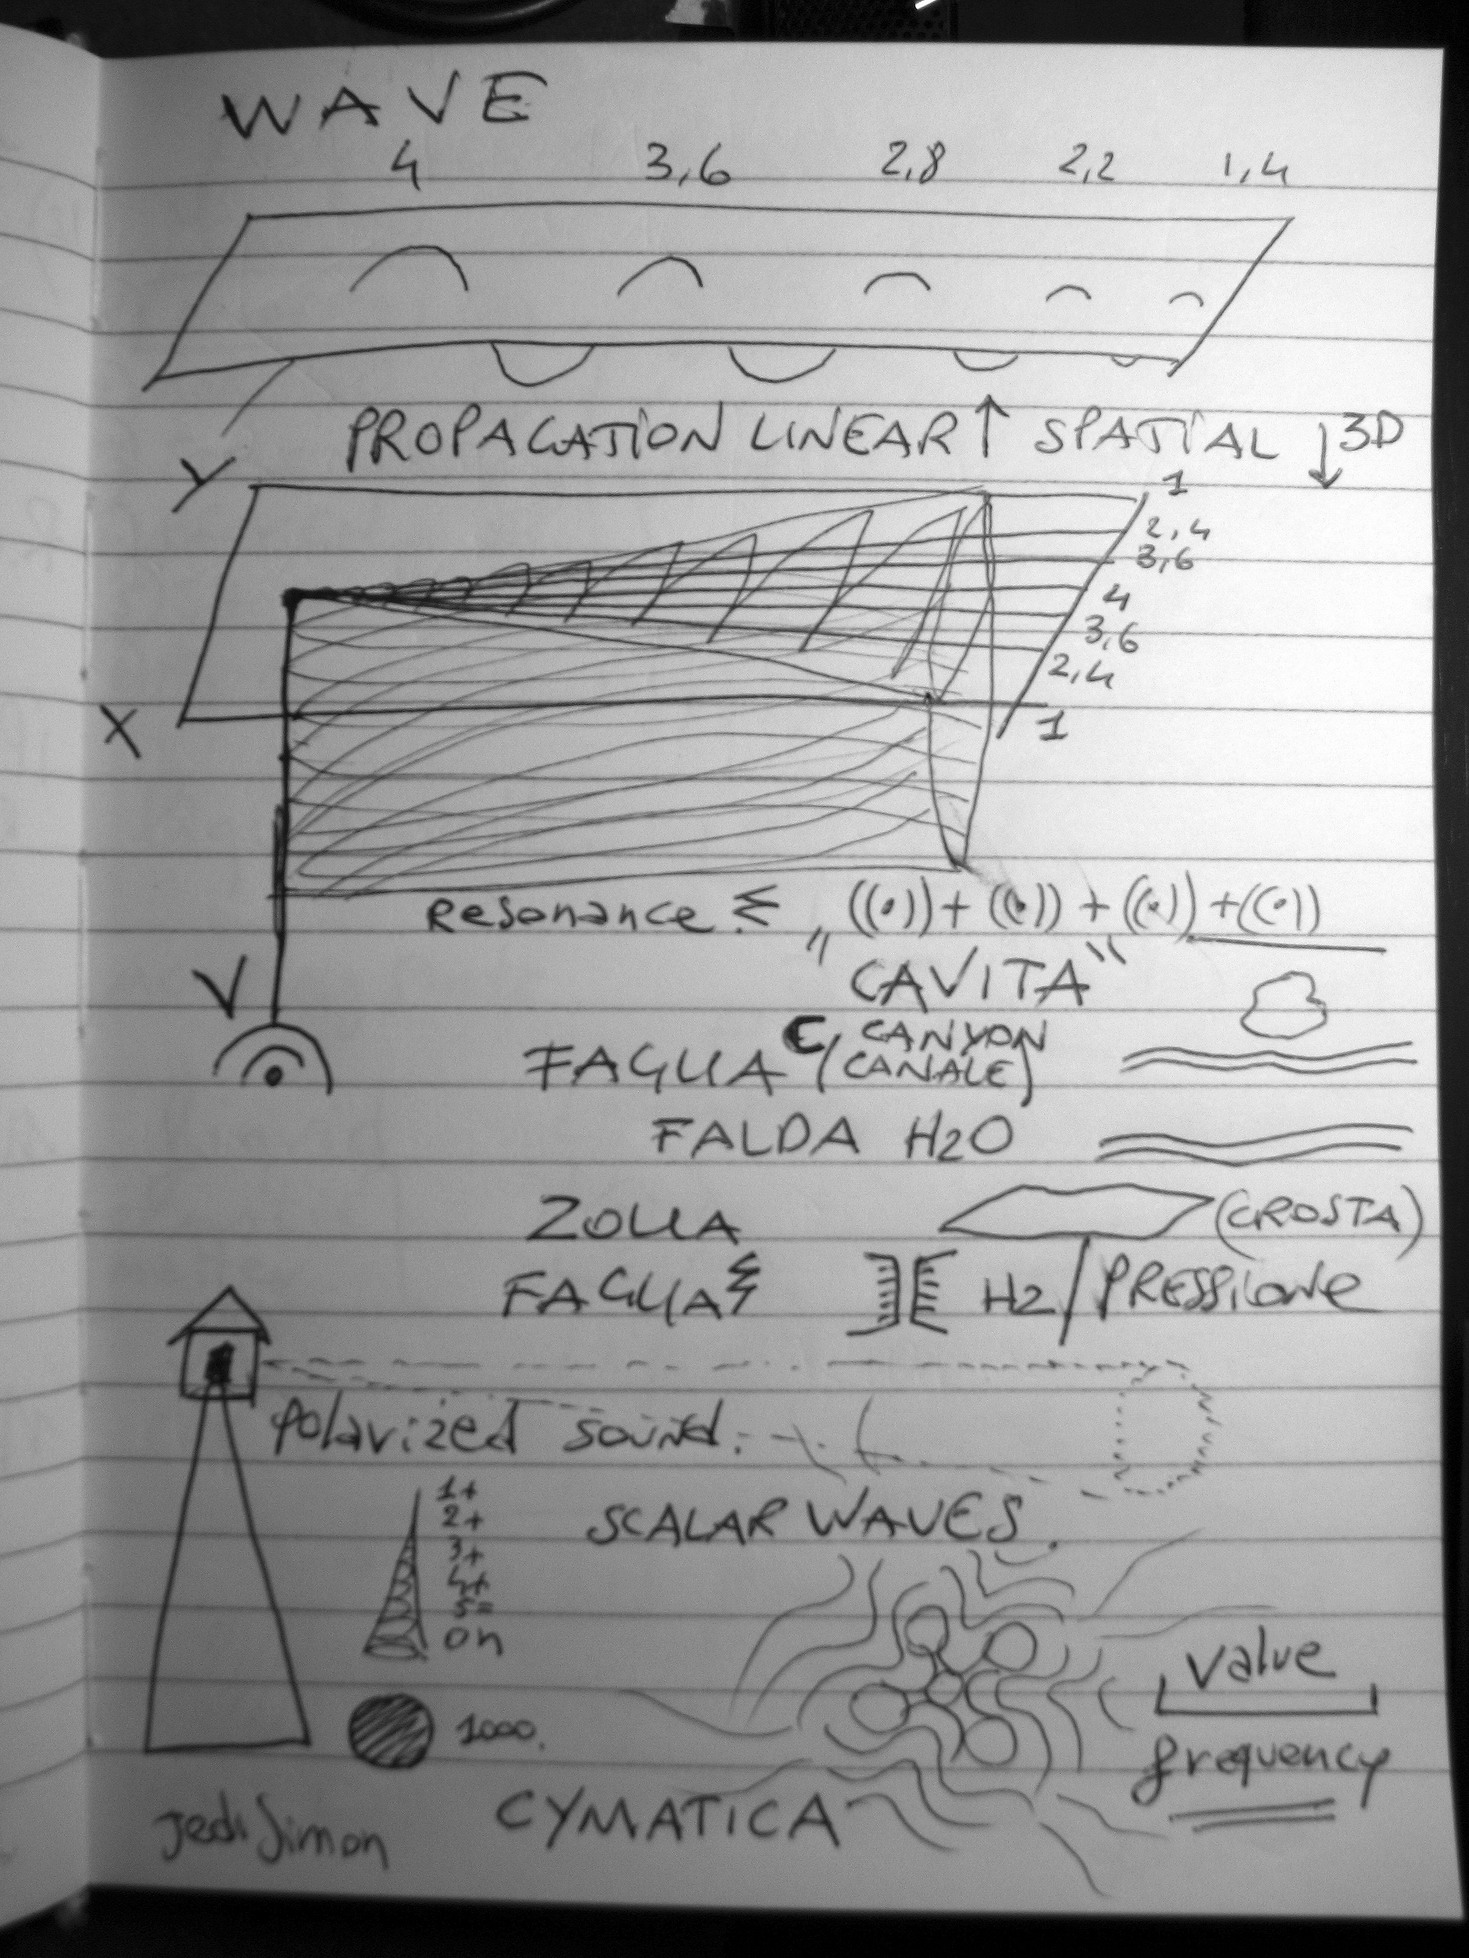 WAVE
4 3,6 2,8 2,2 1,4
PROPAGATION LINEAR ↑ SPATIAL ↓ 3D
Y
1
2,4
3,6
4
3,6
2,4
X
1
Resonance ((•)) + ((•)) + ((•)) + ((•))
V
"CAVITA"
CANYON
FAGLIA (CANALE)
FALDA H2O
ZOLLA (CROSTA)
FAGLIA H2/PRESSIONE
Polarized sound.
1+
2+
3+
4+
5=
on
SCALAR WAVES.
value
frequency
1000.
CYMATICA
Jedi Simon